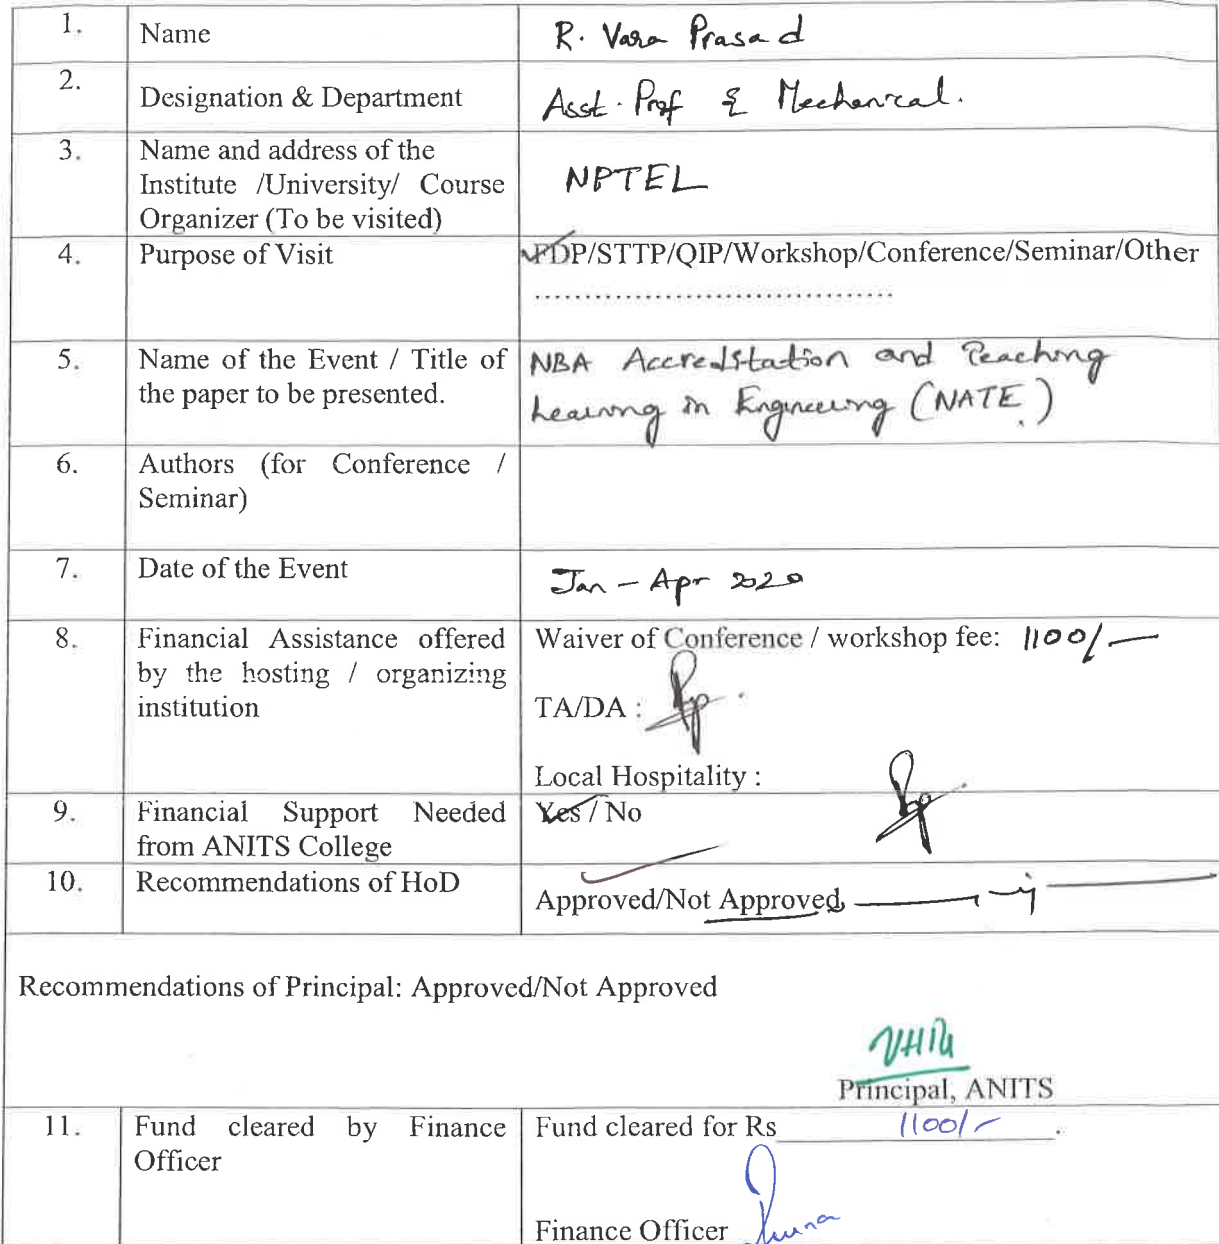 1.
Name
R. Vara Prasad
2.
Designation & Department
Asst. Prof & Mechanical.
3.
Name and address of the
Institute /University/ Course
Organizer (To be visited)
NPTEL
4.
Purpose of Visit
FDP/STTP/QIP/Workshop/Conference/Seminar/Other
....................................
5.
Name of the Event / Title of
the paper to be presented.
NBA Accreditation and Teaching
Learning in Engineering (NATE)
6.
Authors (for Conference /
Seminar)
7.
Date of the Event
Jan - Apr 2020
8.
Financial Assistance offered
by the hosting / organizing
institution
Waiver of Conference / workshop fee: 1100/-
TA/DA :
Local Hospitality :
9.
Financial Support Needed
from ANITS College
Yes / No
10.
Recommendations of HoD
Approved/Not Approved
Recommendations of Principal: Approved/Not Approved
Principal, ANITS
11.
Fund cleared by Finance
Officer
Fund cleared for Rs 1100/- .
Finance Officer